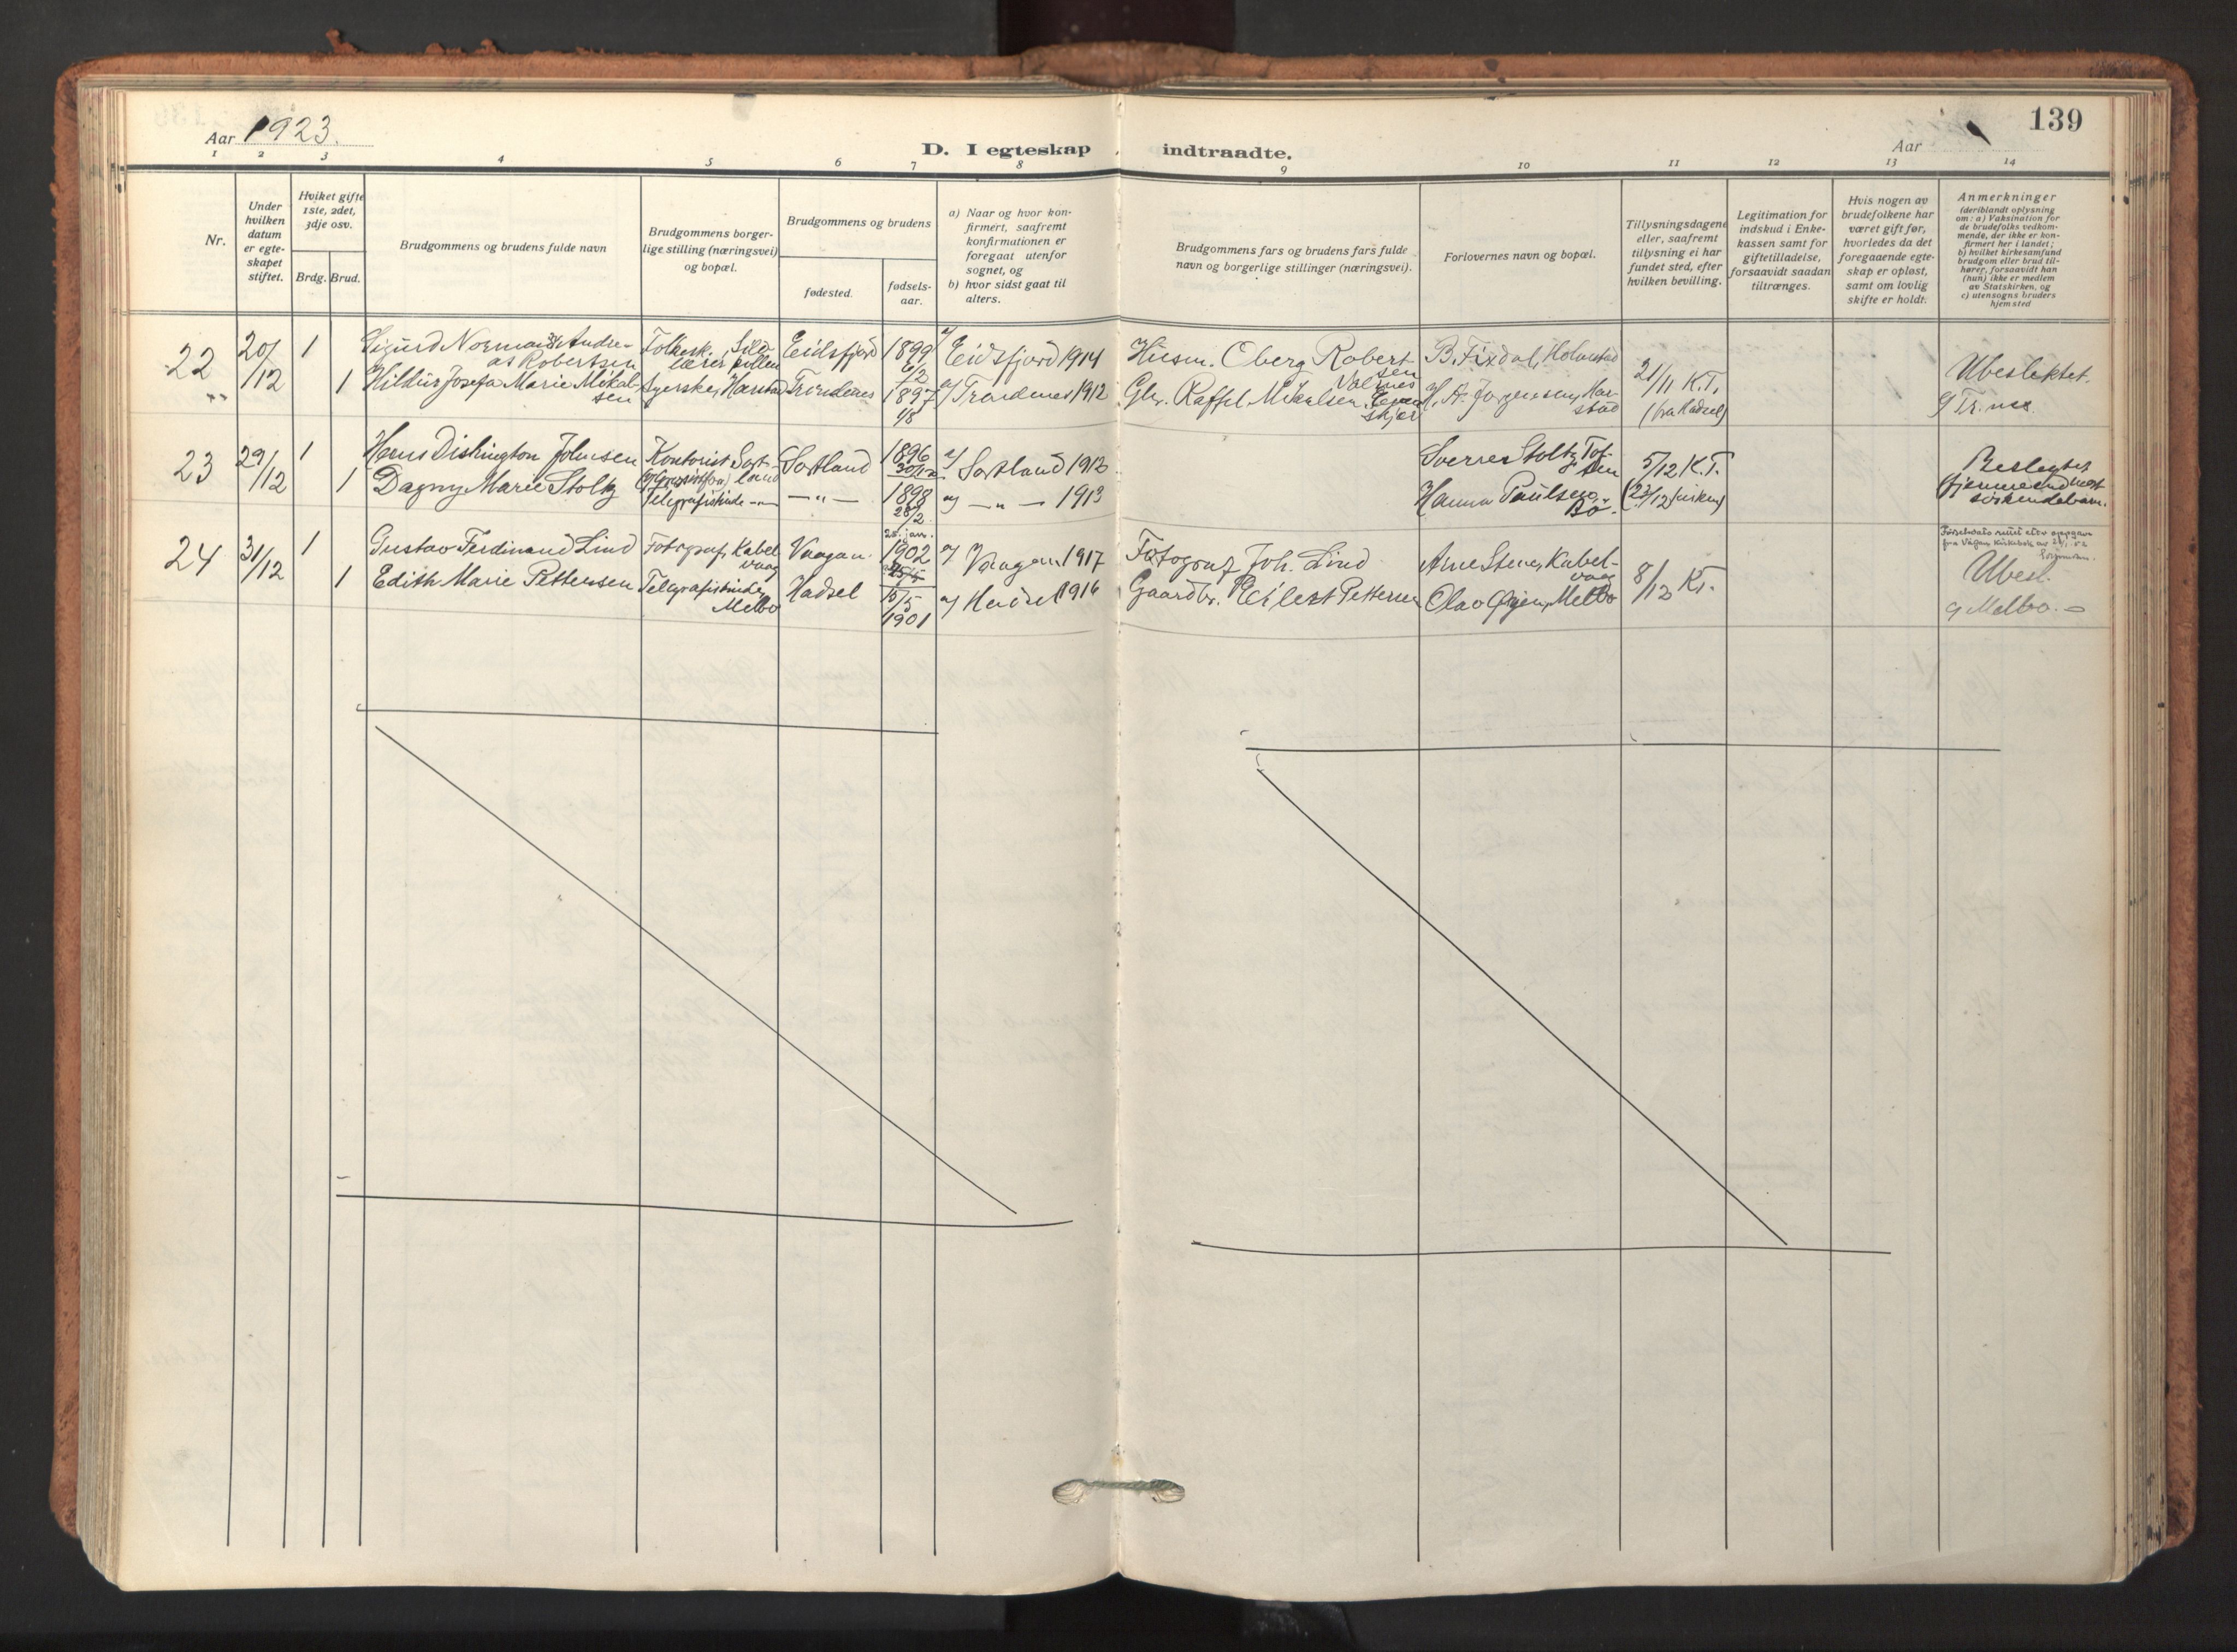 Aar 1923.
D. I egteskap indtraadte.
Aar
139
1 2 3 4 5 6 7 8 9 10 11 12 13 14
Nr.
Under hvilken datum er egteskapet stiftet.
Hvilket gifte 1ste, 2det, 3dje osv.
Brdg. Brud.
Brudgommens og brudens fulde navn
Brudgommens borger-
lige stilling (næringsvei)
og bopæl.
Brudgommens og brudens
fødested.
fødsels-
aar.
a) Naar og hvor kon-
firmert, saafremt
konfirmationen er
foregaat utenfor
sognet, og
b) hvor sidst gaat til
alters.
Brudgommens fars og brudens fars fulde
navn og borgerlige stillinger (næringsvei).
Forlovernes navn og bopæl.
Tillysningsdagene
eller, saafremt
tillysning ei har
fundet sted, efter
hvilken bevilling.
Legitimation for
indskud i Enke-
kassen samt for
giftetilladelse,
forsaavidt saadan
tiltrænges.
Hvis nogen av
brudefolkene har
været gift før,
hvorledes da det
foregaaende egte-
skap er opløst,
samt om lovlig
skifte er holdt.
Anmerkninger
(deriblandt oplysning
om: a) Vaksination for
de brudefolks vedkom-
mende, der ikke er kon-
firmert her i landet;
b) hvilket kirkesamfund
brudgom eller brud til-
hører, forsaavidt han
(hun) ikke er medlem
av Statskirken, og
c) utensogns bruders
hjemsted
22 20/12 1 Sigurd Andre-
as Robertsen Folkesk. lærer, Eidsfjord 1899 a) Eidsfjord 1914 Oberg Robert-
sen B. Fixdal, 21/11 K.T. Ubeslektet.
1 Hildur Josefa Marie Mikal-
sen Harstad Trondenes 1897 4/8 a) Trondenes 1912 H. A. Jørgensen, Har-
stad (fra Hadsel)
23 29/12 1 Hans Dishington Johnsen Kontorist Sort-
land Sortland 1896 a) Sortland 1912 Sverre Stoltz 5/12 K.T. Beslegtet
1 Dagny Marie Stoltz Telegrafistinde -"- -"- 1898 28/2 a) -"- 1913 Hanna Paulsen Bø.
24 31/12 1 Gustav Ferdinand Lind Fotograf, Kabel-
vaag Vaagan. 25. jan. 1902 a) Vaagan 1917 Fotograf Joh. Lind Arne Stener, Kabel-
vaag 8/12 K.T. Ubesl.
1 Edith Marie Pettersen Telegrafistinde,
Melbo Hadsel 15/5 1901 a) Hadsel 1916 Gaardbr. Eilert Pettersen Olav Melbo c) Melbo.